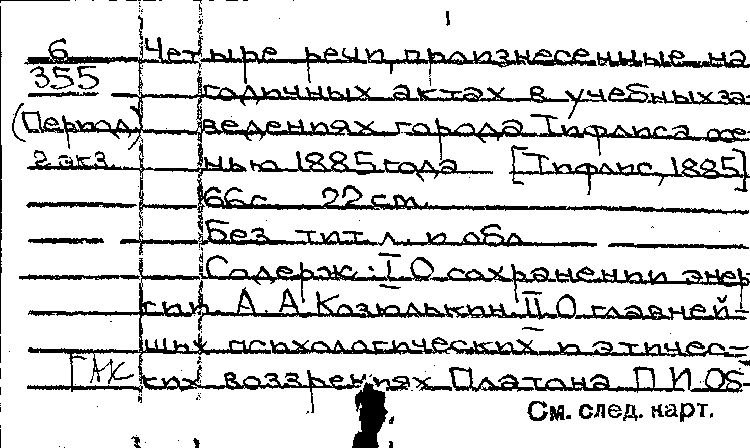 6 Четыре речи, произнесенные на
355 годичных актах в учебных за-
(Период) ведениях города Тифлиса осе-
2 экз. нью 1885 года [Тифлис, 1885]
66 с. 22 cm.
Без тит. л. и обл.
Содерж.: I О сохранении энер
гии. А. А. Козюлькин. II О главней-
ших психологических и этичес-
ГАК ких воззрениях Платона П. И. Об-
См. след. карт.